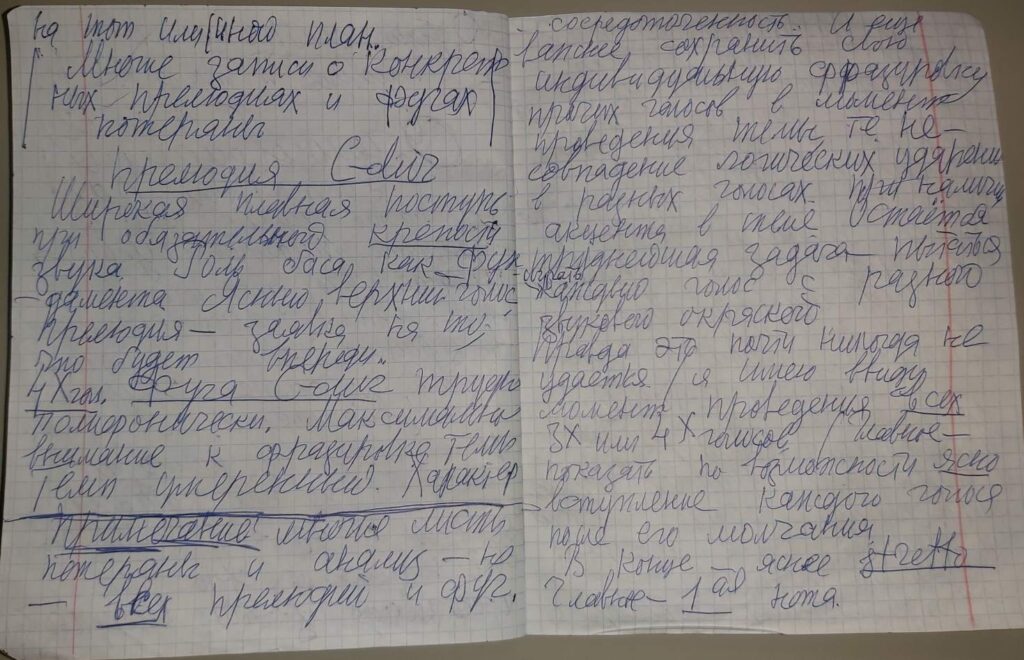 на тот или иной план.
Многие записи о конкрет-
ных прелюдиях и фугах
потеряны
Прелюдия C-dur
Широкая плавная поступь
при обязательной крепости
звука Роль баса как фун-
дамента Ясный верхний голос
Прелюдия — заявка на то,
что будет впереди..
4х гол. Фуга C-dur трудна
полифонически. Максимальное
внимание к фразировке темы
Темп умеренный. Характер
Примечание многие листы
потеряны и анализ — не
— всех прелюдий и фуг.
сосредоточенность. И еще
сохранить свою
индивидуальную фразировку
прочих голосов в момент
проведения темы, те не-
совпадение логических ударений
в разных голосах. При наличии
акцента в теме Остаётся
труднейшая задача — пытаться
играть каждый голос с разного
звукового окраской
Правда это почти никогда не
удаётся /я имею ввиду
момент проведения всех
3х или 4х голосов / Главное —
показать по возможности ясно
вступление каждого голоса
после его молчания
В конце — яснее stretto
Главное — 1ая нота.